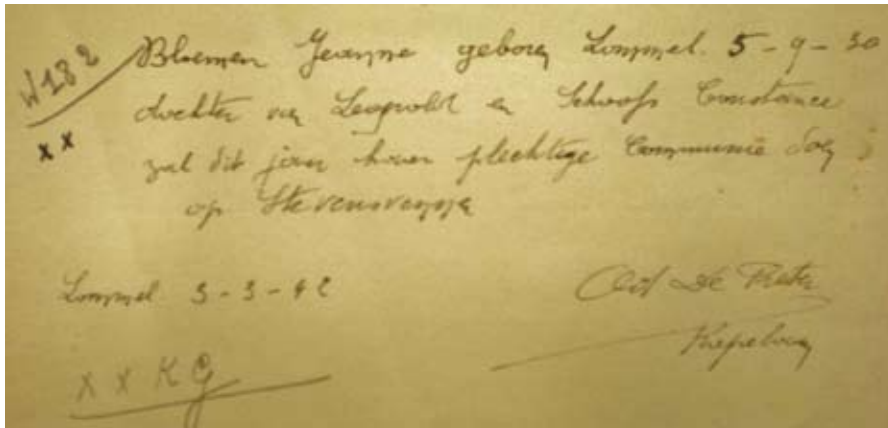 W182
xx
Bloemen Jeanne geboren Lommel. 5-9-30
dochter van Leopold en Schoofs Constance
zal dit jaar haar plechtige Communie doen
op Stevensvenne
Lommel 3-3-42
De Preter
Kapelaan
x x K G